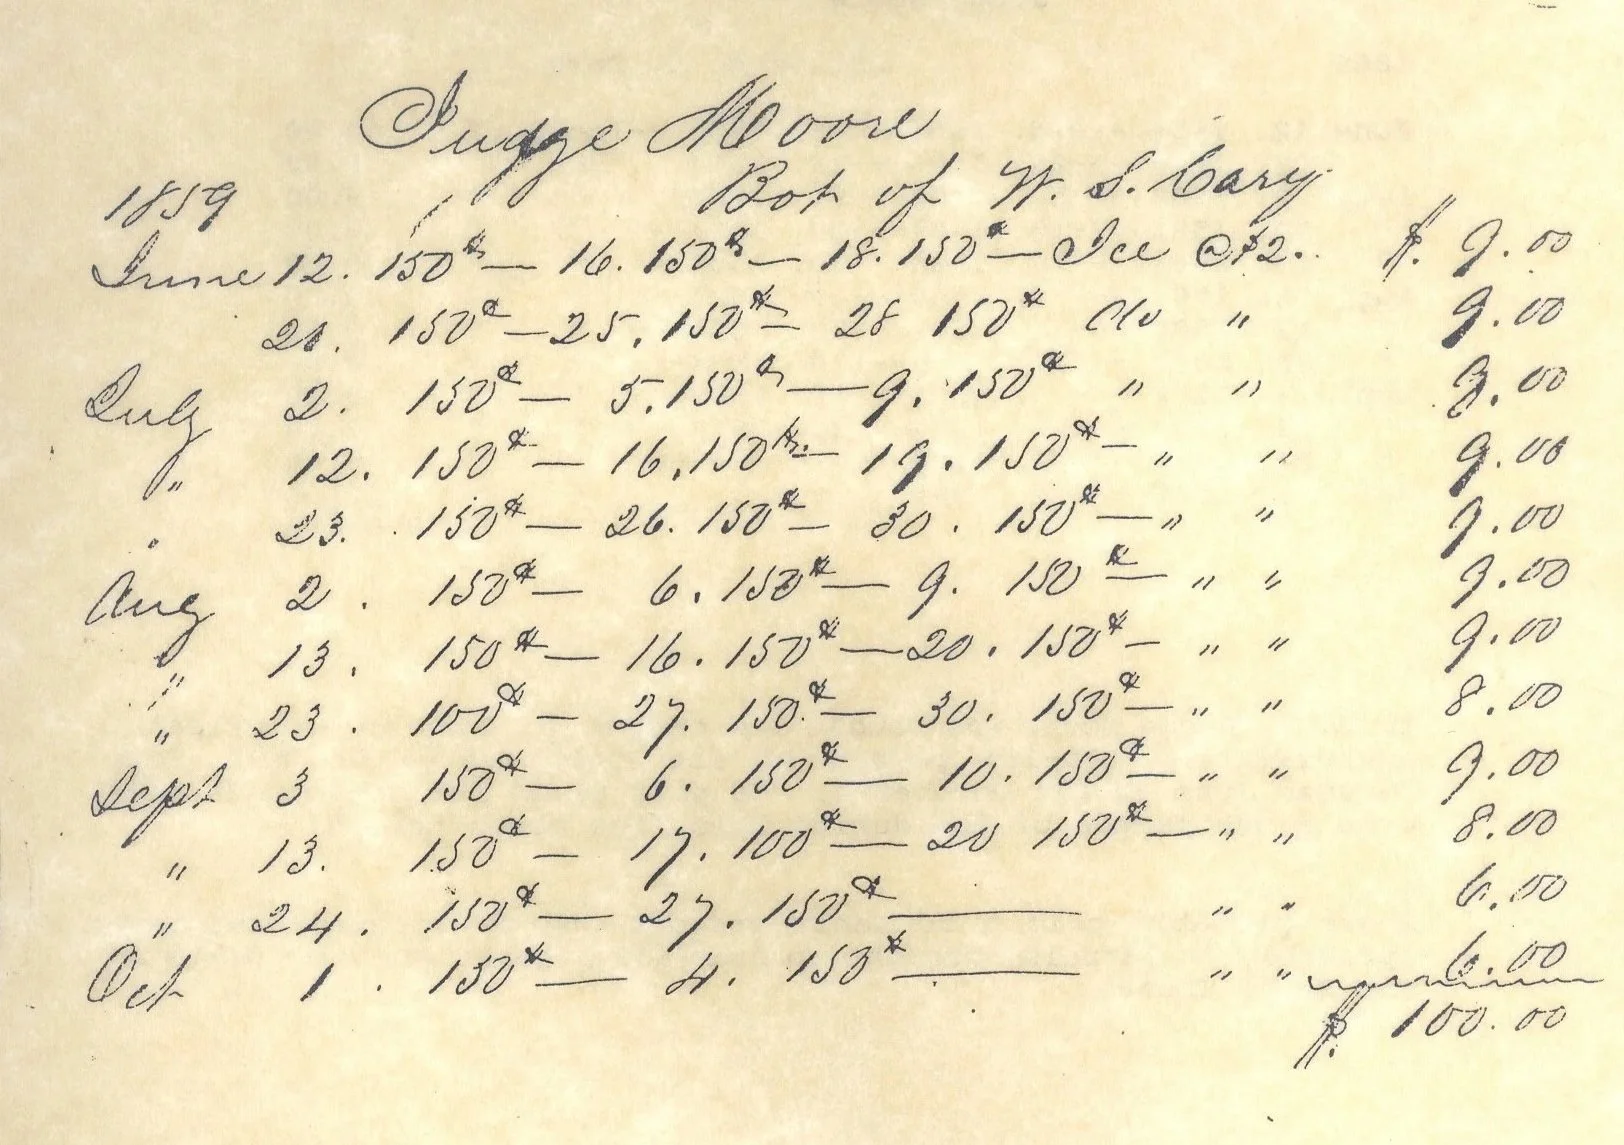 Judge Moore
1859 Bot of W. S. Cary
June 12. 150# — 16. 150# — 18. 150# — Ice @ $2. $. 9.00
21. 150# — 25. 150# — 28 150# do " 9.00
July 2. 150# — 5. 150# — 9. 150# " " 9.00
" 12. 150# — 16. 150# — 19. 150# — " " 9.00
" 23. 150# — 26. 150# — 30. 150# — " " 9.00
Aug 2. 150# — 6. 150# — 9. 150# — " " 9.00
" 13. 150# — 16. 150# — 20. 150# — " " 9.00
" 23. 100# — 27. 150# — 30. 150# — " " 8.00
Sept 3 150# — 6. 150# — 10. 150# — " " 9.00
" 13. 150# — 17. 100# — 20 150# — " " 8.00
" 24. 150# — 27. 150# — " " 6.00
Oct 1. 150# — 4. 150# — " " 6.00
$. 100.00